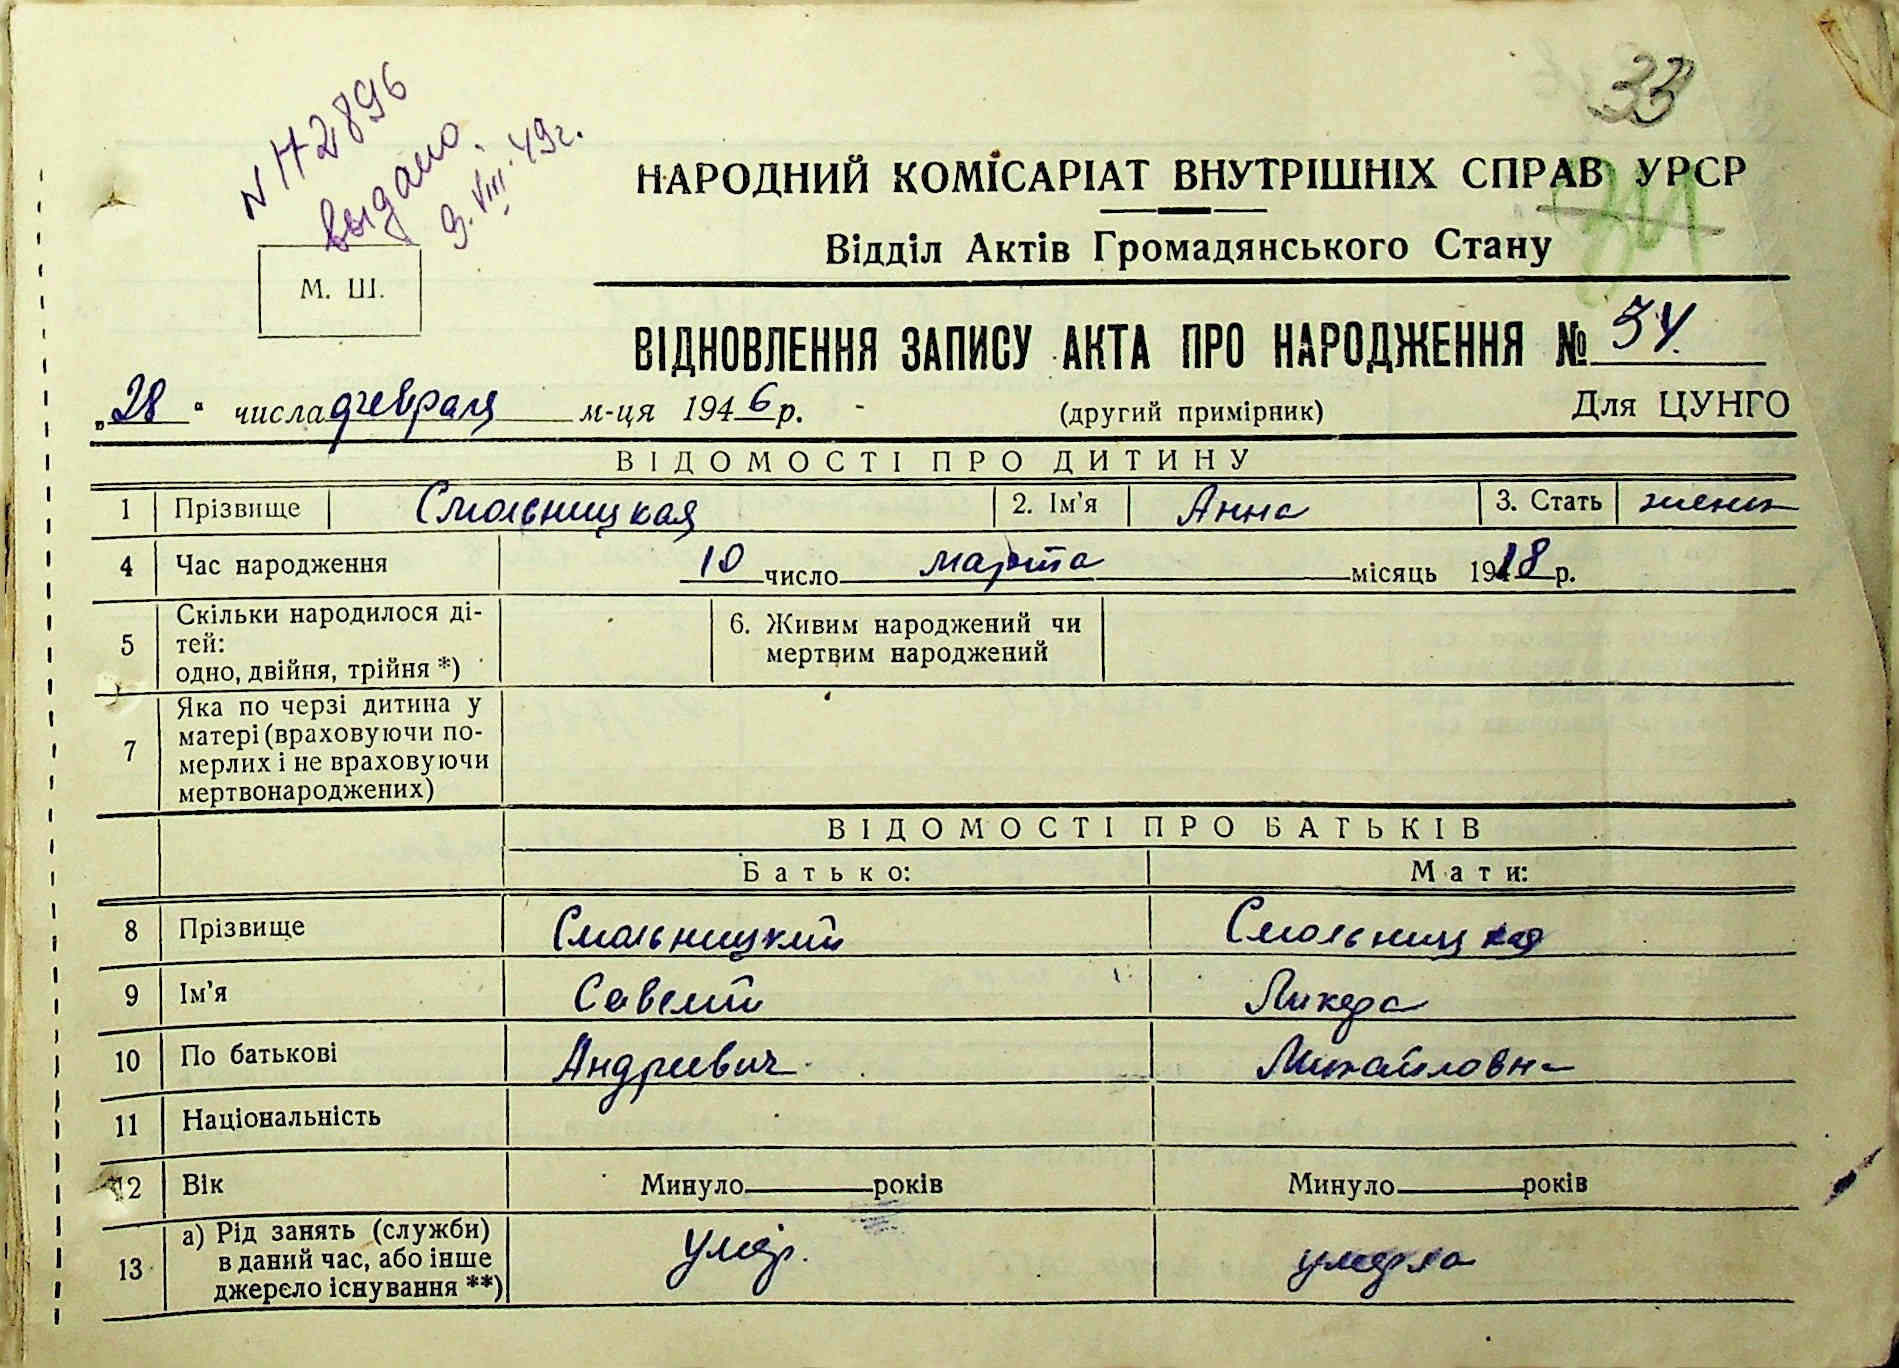 33
N 142896
выдано.
9. VIII. 49 г.
НАРОДНИЙ КОМІСАРІАТ ВНУТРІШНІХ СПРАВ УРСР
Відділ Актів Громадянського Стану
М. Ш.
ВІДНОВЛЕННЯ ЗАПИСУ АКТА ПРО НАРОДЖЕННЯ № 34.
„28“ числа февраля м-ця 1946 р. (другий примірник) Для ЦУНГО
ВІДОМОСТІ ПРО ДИТИНУ
1 Прізвище Смольницкая 2. Ім'я Анна 3. Стать женск
4 Час народження 10 число марта місяць 1918 р.
5 Скільки народилося ді-
тей:
одно, двійня, трійня *)
6. Живим народжений чи
мертвим народжений
7 Яка по черзі дитина у
матері (враховуючи по-
мерлих і не враховуючи
мертвонароджених)
ВІДОМОСТІ ПРО БАТЬКІВ
Батько: Мати:
8 Прізвище Смольницкий Смольницкая
9 Ім'я Савелий Ликера
10 По батькові Андреевич Михайловна
11 Національність
12 Вік Минуло років Минуло років
13 а) Рід занять (служби)
в даний час, або інше
джерело існування **)
умер. умерла